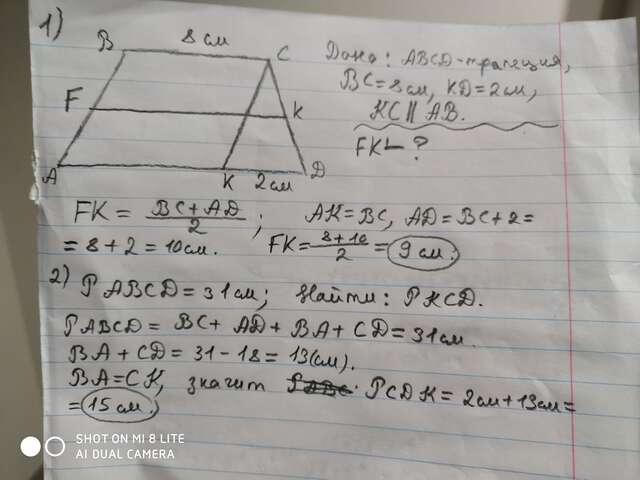 1)
B 8 см C
F K
A K 2 см D
Дано: ABCD-трапеция,
BC=8см, KD=2см,
KC || AB.
FK - ?
FK = BC+AD / 2 ; AK=BC, AD=BC+2=
= 8+2=10см. FK= 8+10 / 2 = 9 см.
2) P ABCD = 31см; Найти: PKCD.
PABCD = BC+ AD + BA + CD = 31см.
BA + CD = 31 - 18 = 13(см).
BA=CK, значит PCDK = 2см + 13см=
= 15 см.
SHOT ON MI 8 LITE
AI DUAL CAMERA